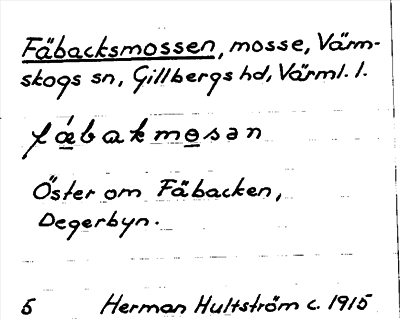 Fäbacksmossen, mosse, Värm-
skogs sn, Gillbergs hd, Värml. l.
fä́bakmosən
Öster om Fäbacken,
Degerbyn.
5 Herman Hultström c. 1915